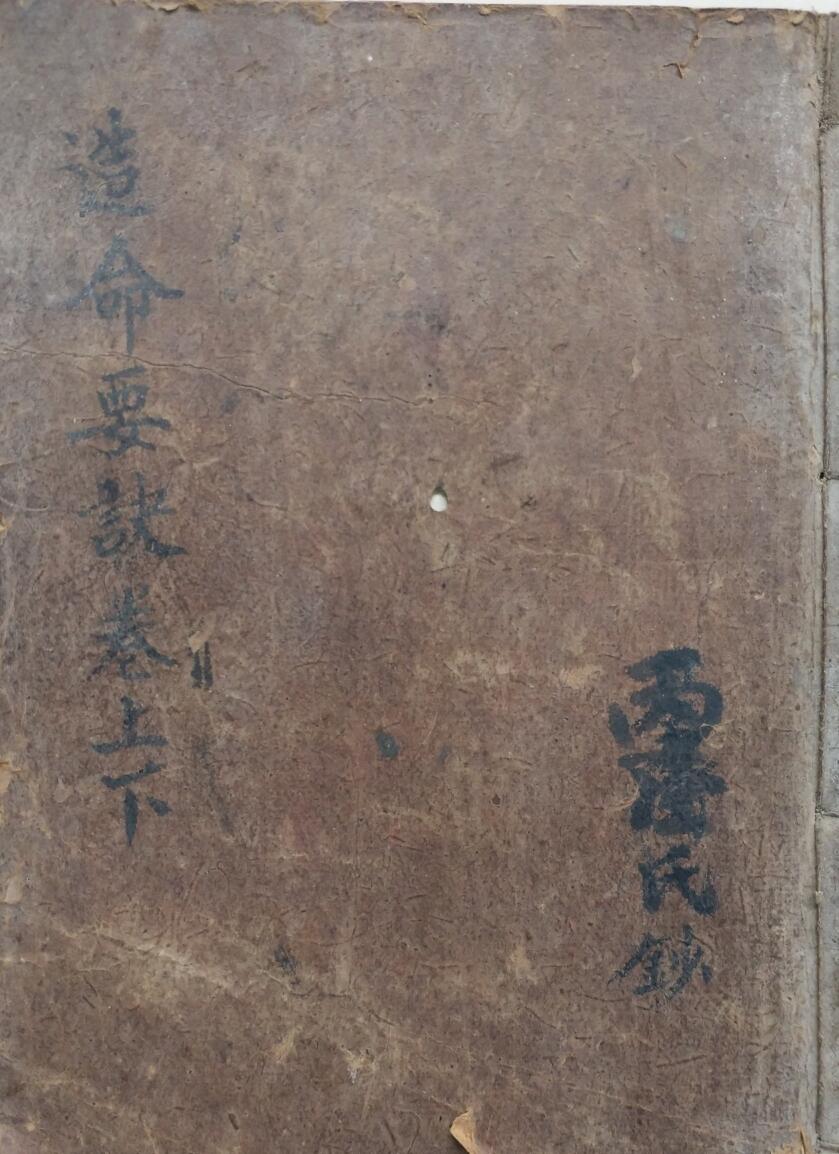 造命要訣卷上下
氏鈔